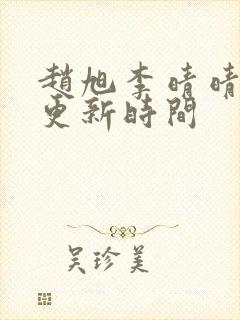 趙旭李晴晴
更新時間
吴珍美